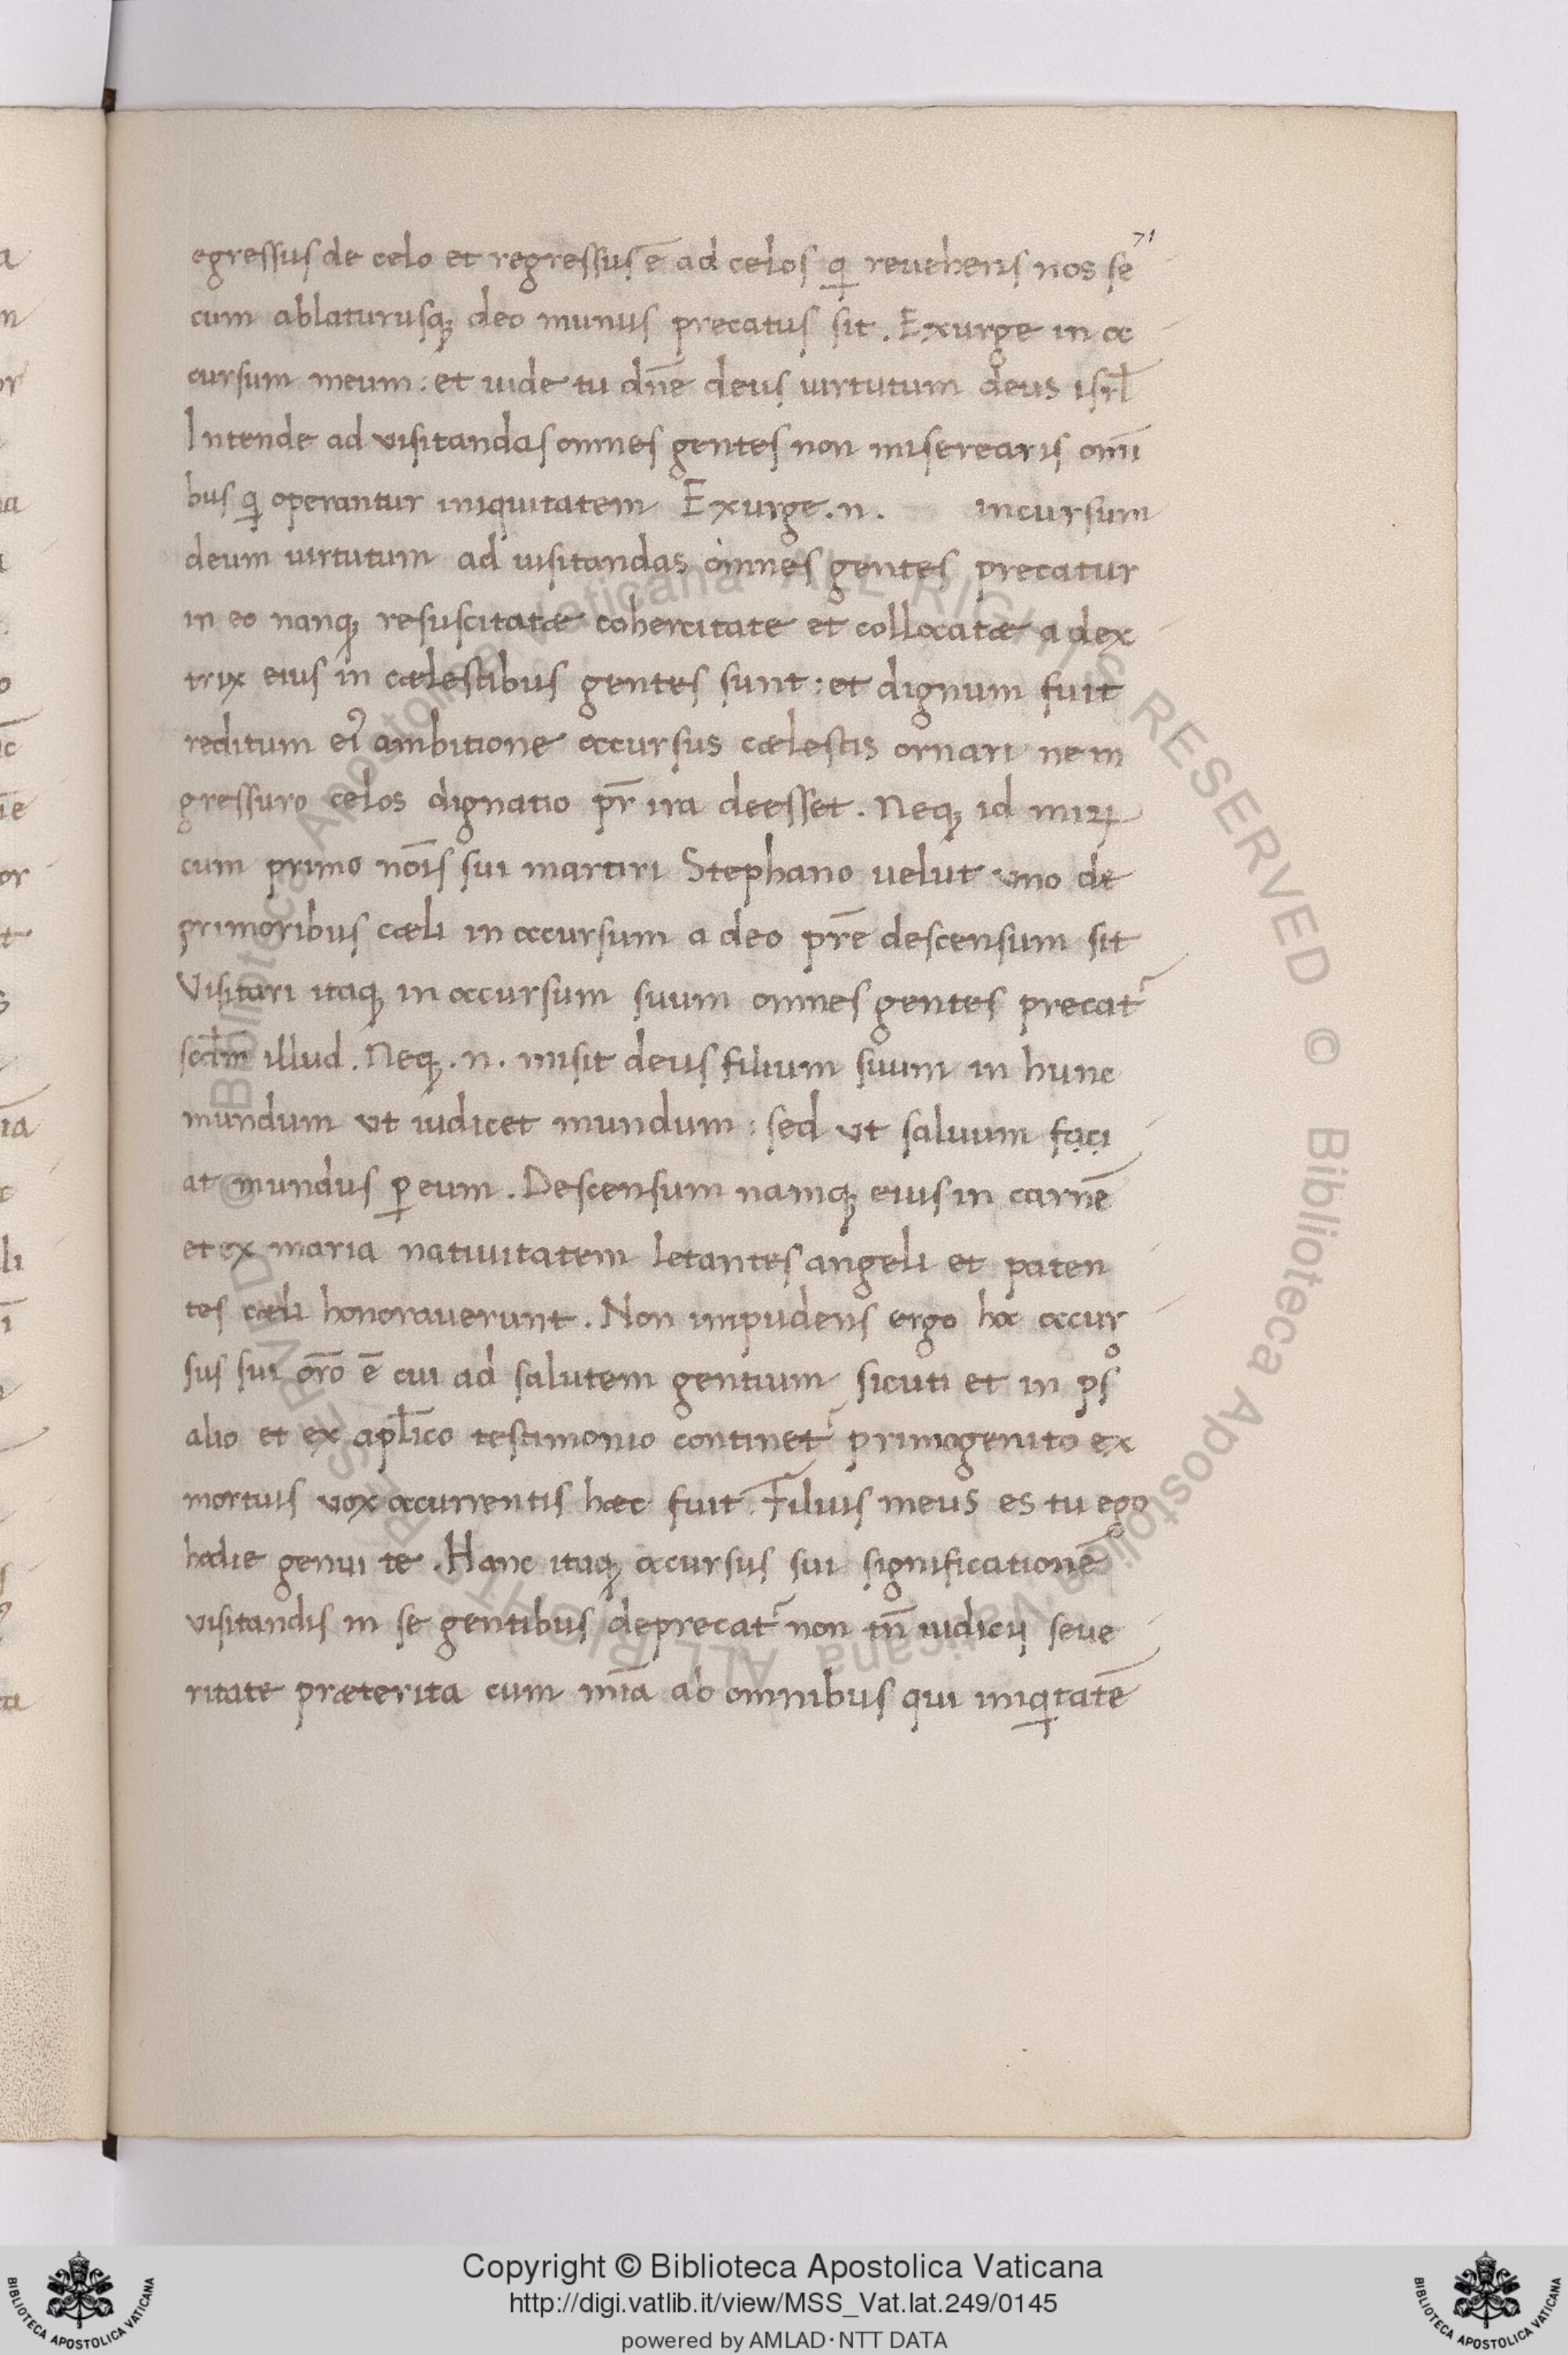 71
egressus de celo et regressus ē ad celos qi reuehens nos se
cum ablaturusq; deo munus precatus sit. Exurge in oc
cursum meum: et uide tu dn̄e deus uirtutum deus isrl̄
Intende ad visitandas omnes gentes non miserearis om̄i
bus qi operantur iniquitatem Exurge. n. incursum
deum uirtutum ad uisitandas omnes gentes precatur
in eo nanq; resuscitatæ cohercitate et collocatæ a dex
trix eius in cælestibus gentes sunt: et dignum fuit
reditum ei ambitione occursus cælestis ornari ne in
gressuro celos dignatio pr̄ ira deesset. Neq; id miꝝ
cum primo nōis sui martiri Stephano uelut uno de
primoribus cæli in occursum a deo prē descensum sit
Visitari itaq; in occursum suum omnes gentes precat᷑
scd̄m illud. Neq;. n. misit deus filium suum in hunc
mundum ut iudicet mundum: sed ut saluum faci
at mundus ꝑ eum. Descensum namq; eius in carnē
et ex maria natiuitatem letantes angeli et paten
tes cæli honorauerunt. Non impudens ergo hoc occur
sus sui orō ē cui ad salutem gentium sicuti et in psº
alio et ex apl̄ico testimonio continet᷑ primogenito ex
mortuis vox occurrentis hæc fuit. Filius meus es tu ego
hodie genui te. Hanc itaq; occursus sui significationē
visitandis in se gentibus deprecat᷑ non tn̄ iudicij seue
ritate præterita cum mīa ab omnibus qui iniqitatē
Copyright © Biblioteca Apostolica Vaticana
http://digi.vatlib.it/view/MSS_Vat.lat.249/0145
powered by AMLAD·NTT DATA